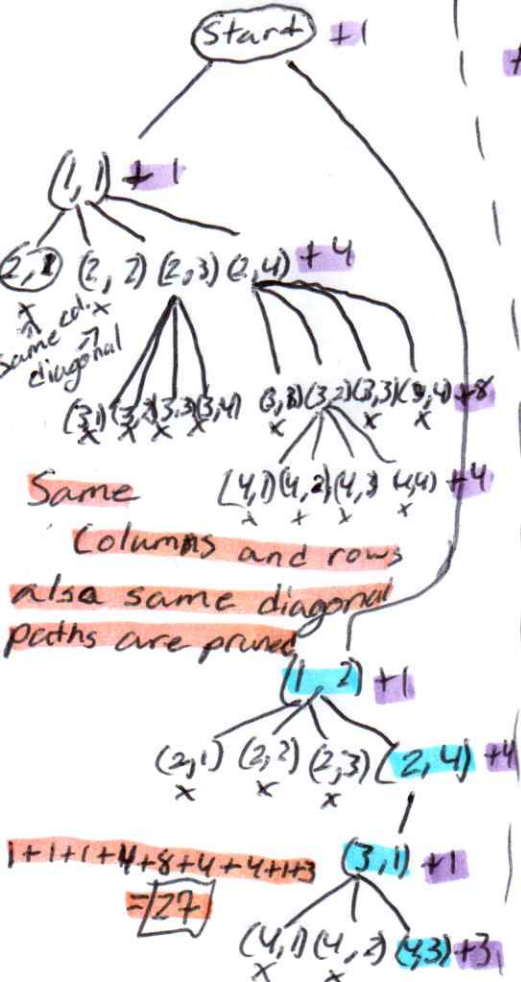 Start +1
+
(1,1) +1
(2,1) (2,2) (2,3) (2,4) +4
x x
same col.
diagonal
(3,1) (3,2) (3,3) (3,4) (3,1) (3,2) (3,3) (3,4) +8
x x x x x x x
(4,1) (4,2) (4,3) (4,4) +4
x x x x
Same
Columns and rows
also same diagonal
paths are pruned
(1 2) +1
(2,1) (2,2) (2,3) (2,4) +4
x x x
1+1+1+4+8+4+4+1+3
(3,1) +1
=27
(4,1) (4,2) (4,3) +3
x x